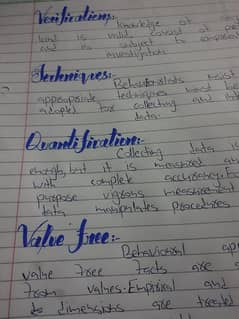 Verification:-
knowledge of
kind is valid consist of
and is subject to
investigation
Techniques:-
Behavioralists insist
appropriate techniques must be
adopted for collecting and
data.
Quantification:-
Collecting data is
enough, but it is measured
with complete accuracy. For
purpose vigrous measurement
data manipulates procedures
Value free:-
Behavioral
value free facts are
from values. Empirical and
dimensions are treated